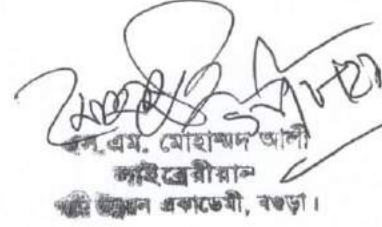 এস.এম. মোহাম্মদ আলী
লাইব্রেরীয়ান
পল্লী উন্নয়ন একাডেমী, বগুড়া।